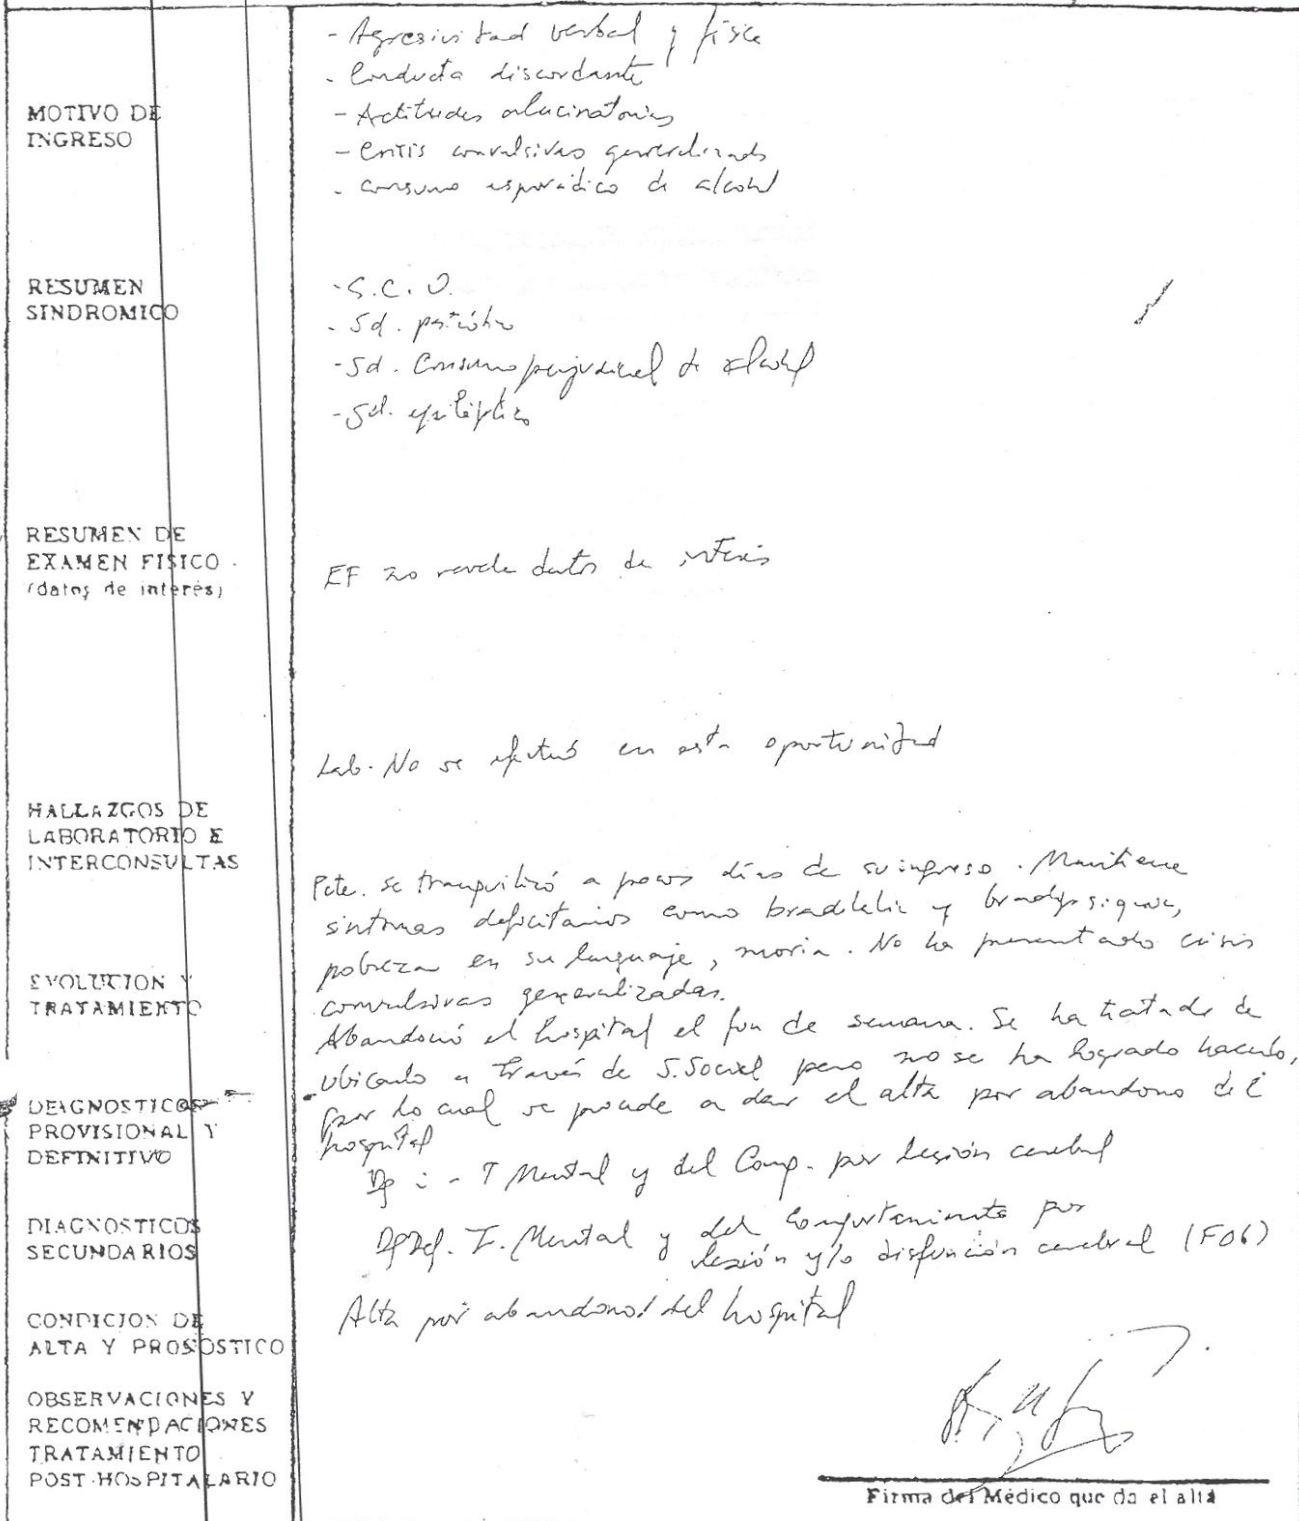 MOTIVO DE
INGRESO
- Agresividad verbal y física
- Conducta discordante
- Actitudes alucinatorias
- Crisis convulsivas generalizadas
- Consumo esporádico de alcohol
RESUMEN
SINDROMICO
- S.C.O.
- Sd. psicótico
- Sd. Consumo perjudicial de alcohol
- Sd. epiléptico
RESUMEN DE
EXAMEN FISICO
(datos de interés)
EF no revela datos de interés
HALLAZGOS DE
LABORATORIO E
INTERCONSULTAS
Lab. No se efectuó en esta oportunidad
EVOLUCION Y
TRATAMIENTO
Pcte. se tranquilizó a pocos días de su ingreso. Mantiene
síntomas deficitarios como bradilalia y bradipsiquia,
pobreza en su lenguaje, moria. No ha presentado crisis
convulsivas generalizadas.
Abandonó el hospital el fin de semana. Se ha tratado de
ubicarlo a través de S. Social pero no se ha logrado hacerlo,
por lo cual se procede a dar el alta por abandono del
hospital
DIAGNOSTICOS
PROVISIONAL Y
DEFINITIVO
Dp : - T Mental y del Comp. por lesión cerebral
DIAGNOSTICOS
SECUNDARIOS
T. Mental y del comportamiento por
lesión y/o disfunción cerebral (F06)
CONDICION DE
ALTA Y PRONOSTICO
Alta por abandono del hospital
OBSERVACIONES Y
RECOMENDACIONES
TRATAMIENTO
POST-HOSPITALARIO
Firma del Médico que da el alta